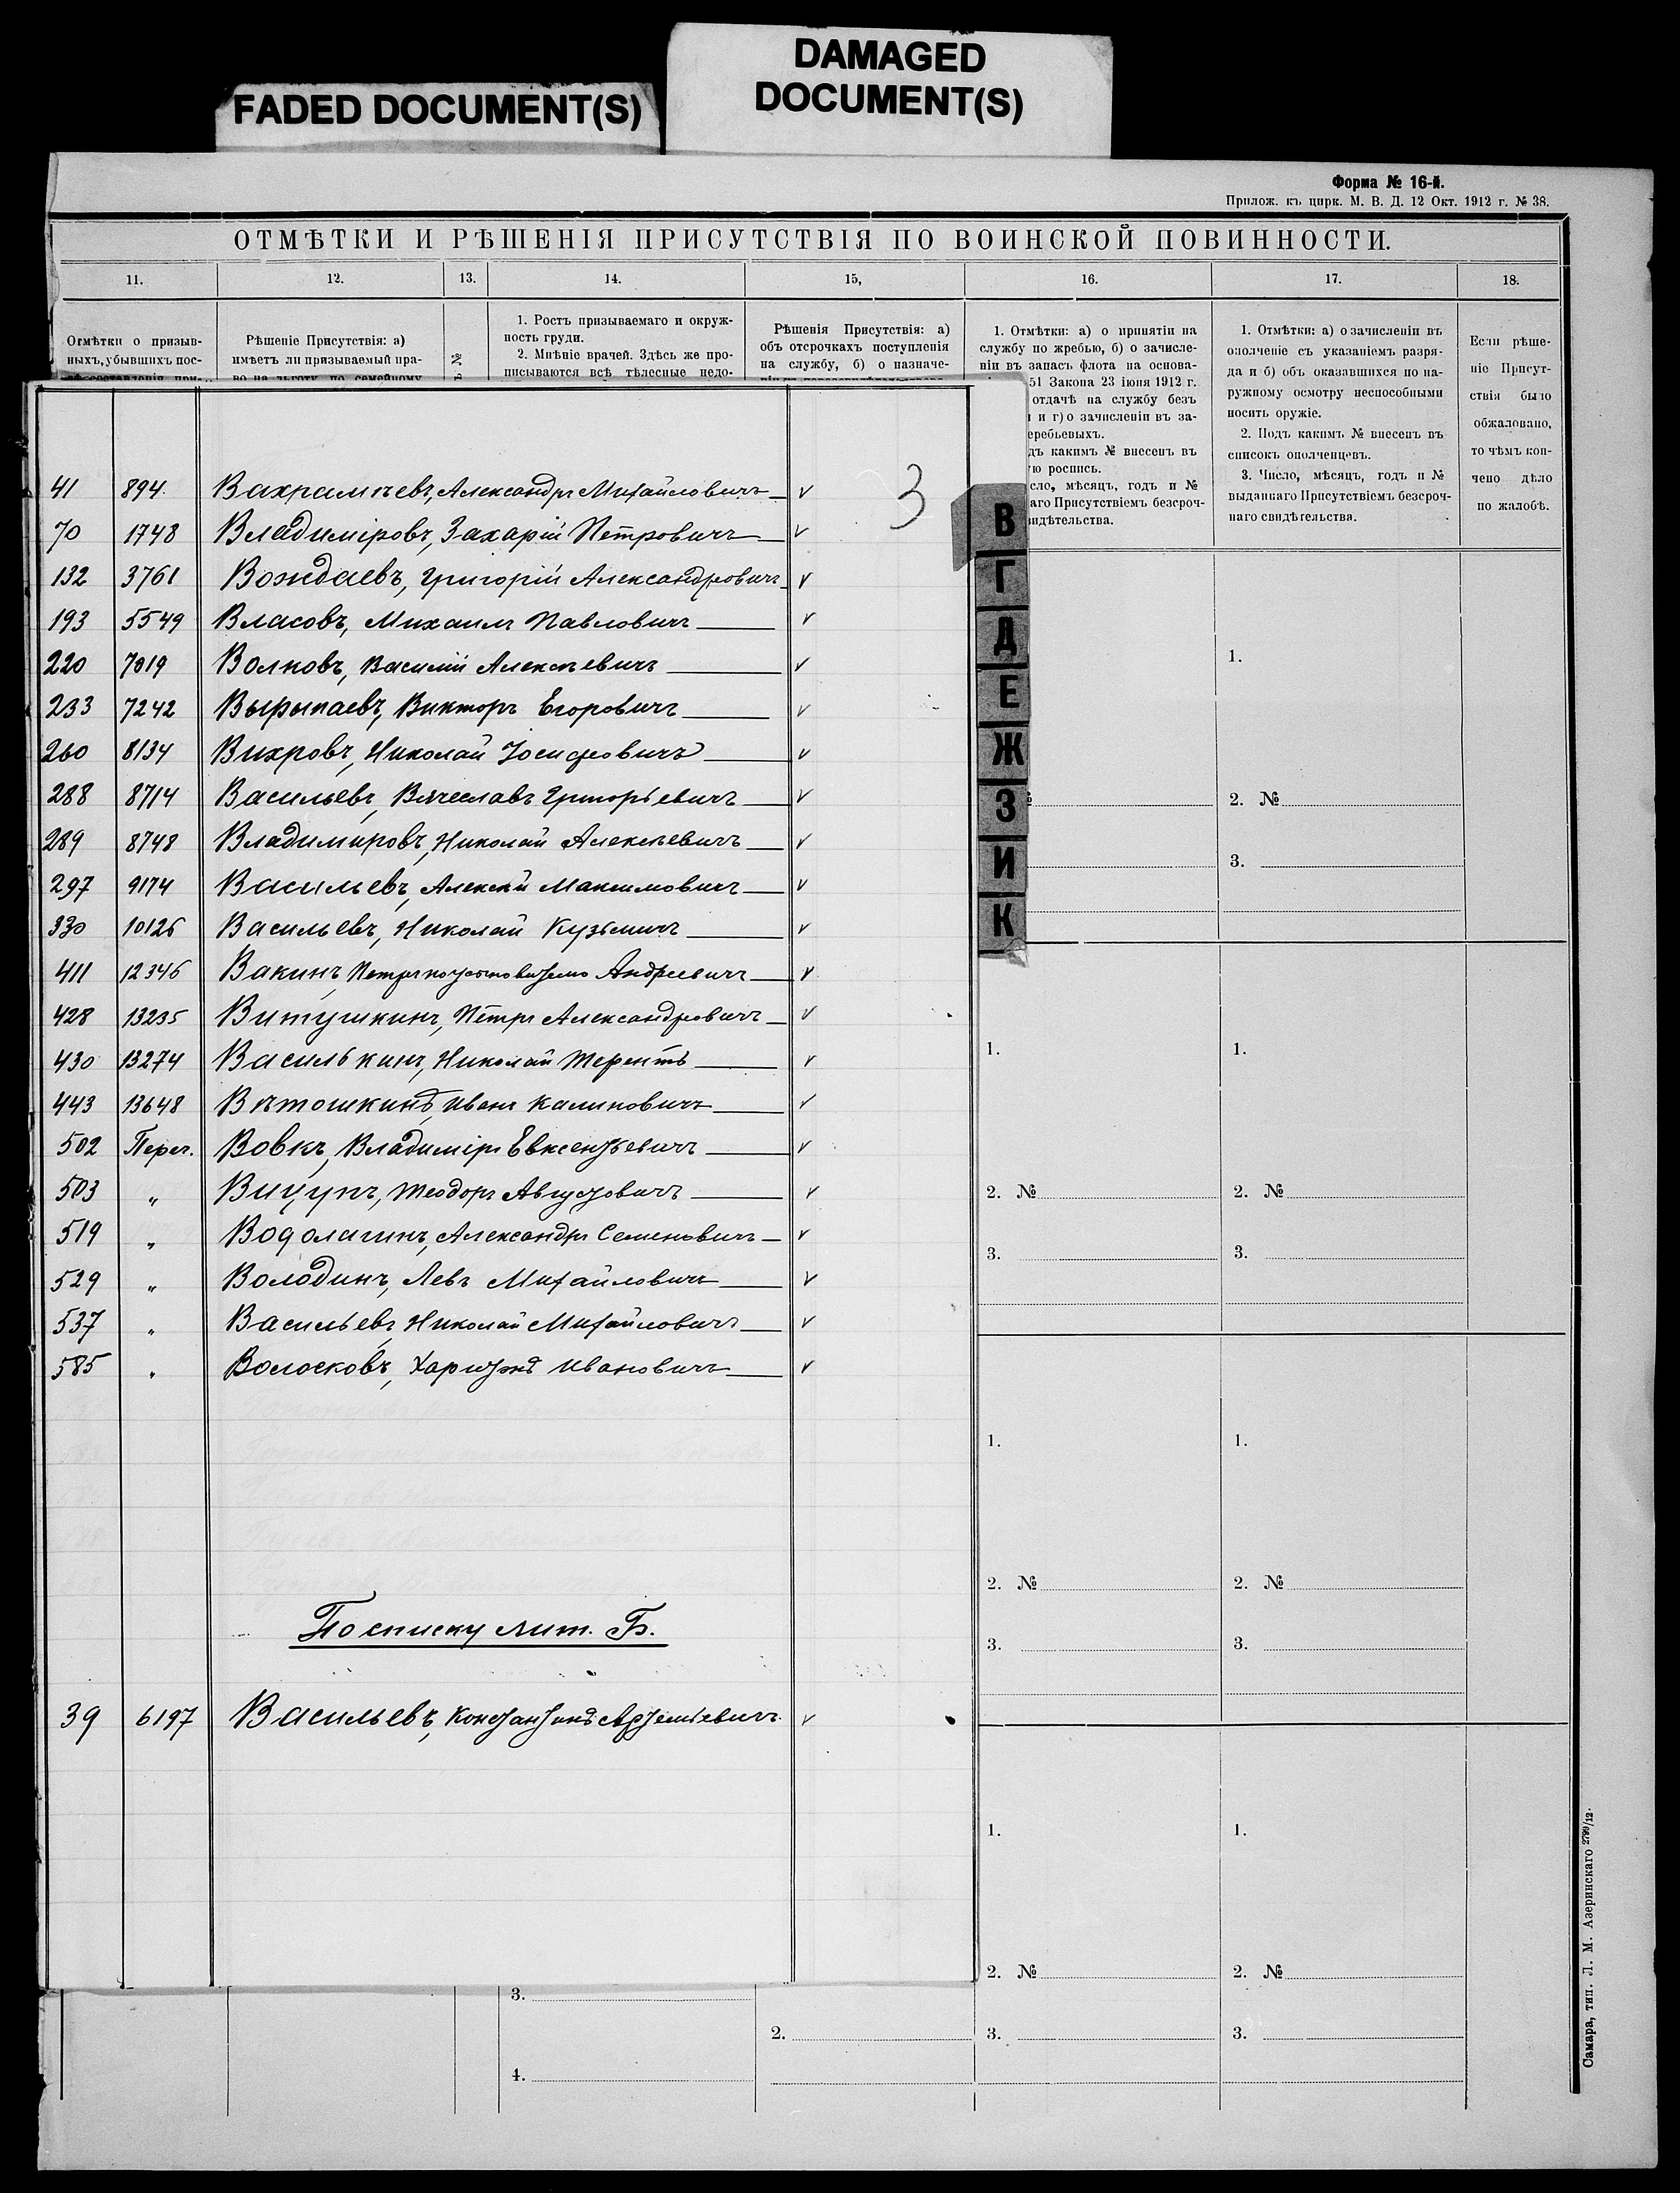 FADED DOCUMENT(S)
DAMAGED
DOCUMENT(S)
Форма № 16-й.
Прилож. къ цирк. М. В. Д. 12 Окт. 1912 г. № 38.
ОТМѢТКИ И РѢШЕНІЯ ПРИСУТСТВІЯ ПО ВОИНСКОЙ ПОВИННОСТИ.
11. 12. 13. 14. 15, 16. 17. 18.
Отмѣтки о призыв-
ныхъ, убывшихъ пос-
лѣ составленія при-
Рѣшеніе Присутствія: а)
имѣетъ ли призываемый пра-
во на льготу по семейному
№
1. Ростъ призываемаго и окруж-
ность груди.
2. Мнѣніе врачей. Здѣсь же про-
писываются всѣ тѣлесные недо-
Рѣшенія Присутствія: а)
объ отсрочкахъ поступленія
на службу, б) о назначе-
1. Отмѣтки: а) о принятіи на
службу по жребью, б) о зачисле-
ніи въ запасъ флота на основа-
51 Закона 23 іюня 1912 г.
отдачѣ на службу безъ
и г) о зачисленіи въ за-
еребьевыхъ.
дъ какимъ № внесенъ въ
ую роспись.
сло, мѣсяцъ, годъ и №
аго Присутствіемъ безсроч-
видѣтельства.
1. Отмѣтки: а) о зачисленіи въ
ополченіе съ указаніемъ разря-
да и б) объ оказавшихся по на-
ружному осмотру неспособными
носить оружіе.
2. Подъ какимъ № внесенъ въ
списокъ ополченцевъ.
3. Число, мѣсяцъ, годъ и №
выданнаго Присутствіемъ безсроч-
наго свидѣтельства.
Если рѣше-
ніе Присут-
ствія было
обжаловано,
то чѣмъ кон-
чено дѣло
по жалобѣ.
3
41 894 Вахрамѣевъ, Александръ Михайловичъ
70 1748 Владиміровъ, Захарій Петровичъ
132 3761 Вождаевъ, Григорій Александровичъ
193 5549 Власовъ, Михаилъ Павловичъ
220 7019 Волковъ, Василій Алексѣевичъ
233 7242 Вырыпаевъ, Викторъ Егоровичъ
260 8134 Вихровъ, Николай Іосифовичъ
288 8714 Васильевъ, Вячеславъ Григорьевичъ
289 8748 Владимировъ, Николай Алексѣевичъ
297 9174 Васильевъ, Алексѣй Максимовичъ
330 10126 Васильевъ, Николай Кузьмичъ
411 12346 Вакинъ, Петръ Андреевичъ
428 13235 Витушкинъ, Петръ Александровичъ
430 13274 Василькинъ, Николай Терентъ
443 13648 Вѣтошкинъ, Иванъ Калиновичъ
502 Переч. Вовкъ, Владиміръ Евксентьевичъ
503 " Вицупъ, Теодоръ Августовичъ
519 " Водолагинъ, Александръ Семеновичъ
529 " Володинъ, Левъ Михайловичъ
537 " Васильевъ, Николай Михайловичъ
585 " Волосковъ, Харитонъ Ивановичъ
По списку лит. Б.
39 6197 Васильевъ, Константинъ Артемьевичъ
В
Г
Д
Е
Ж
З
И
К
1.
2. №
3.
1. 1.
2. № 2. №
3. 3.
1. 1.
2. № 2. №
3. 3.
1. 1.
2. № 2. №
3. 2. 3. 3.
4.
Самара, тип. Л. М. Азеринскаго 2799/12.